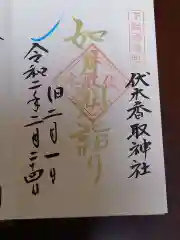 伏木香取神社
如月詣り
旧二月一日
令和二年二月二十四日